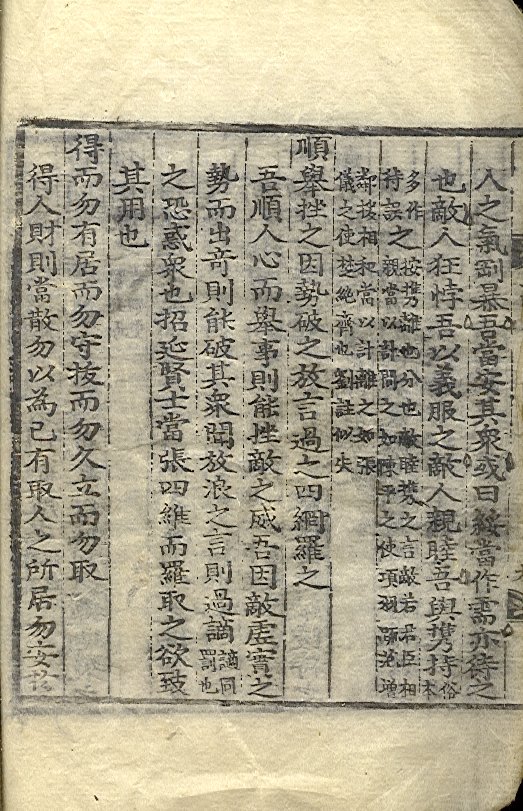 人之氣剛暴吾當安其衆或曰綏當作需亦待之
也敵人狂悖吾以義服之敵人親睦吾與攜持俗本
多作待誤之按攜離也分也敵睦攜之言敵若君臣相親當以計間之如陳平之使項羽踈范增
鄰接相和當以計離之如張儀之使楚絶齊也劉註似失
順舉挫之因勢破之放言過之四網羅之
吾順人心而舉事則能挫敵之威吾因敵虛實之
勢而出竒則能破其衆聞放浪之言則過謫謫同罰也
之恐惑衆也招延賢士當張四維而羅取之欲致
其用也
得而勿有居而勿守拔而勿久立而勿取
得人財則當散勿以為己有取人之所居勿安